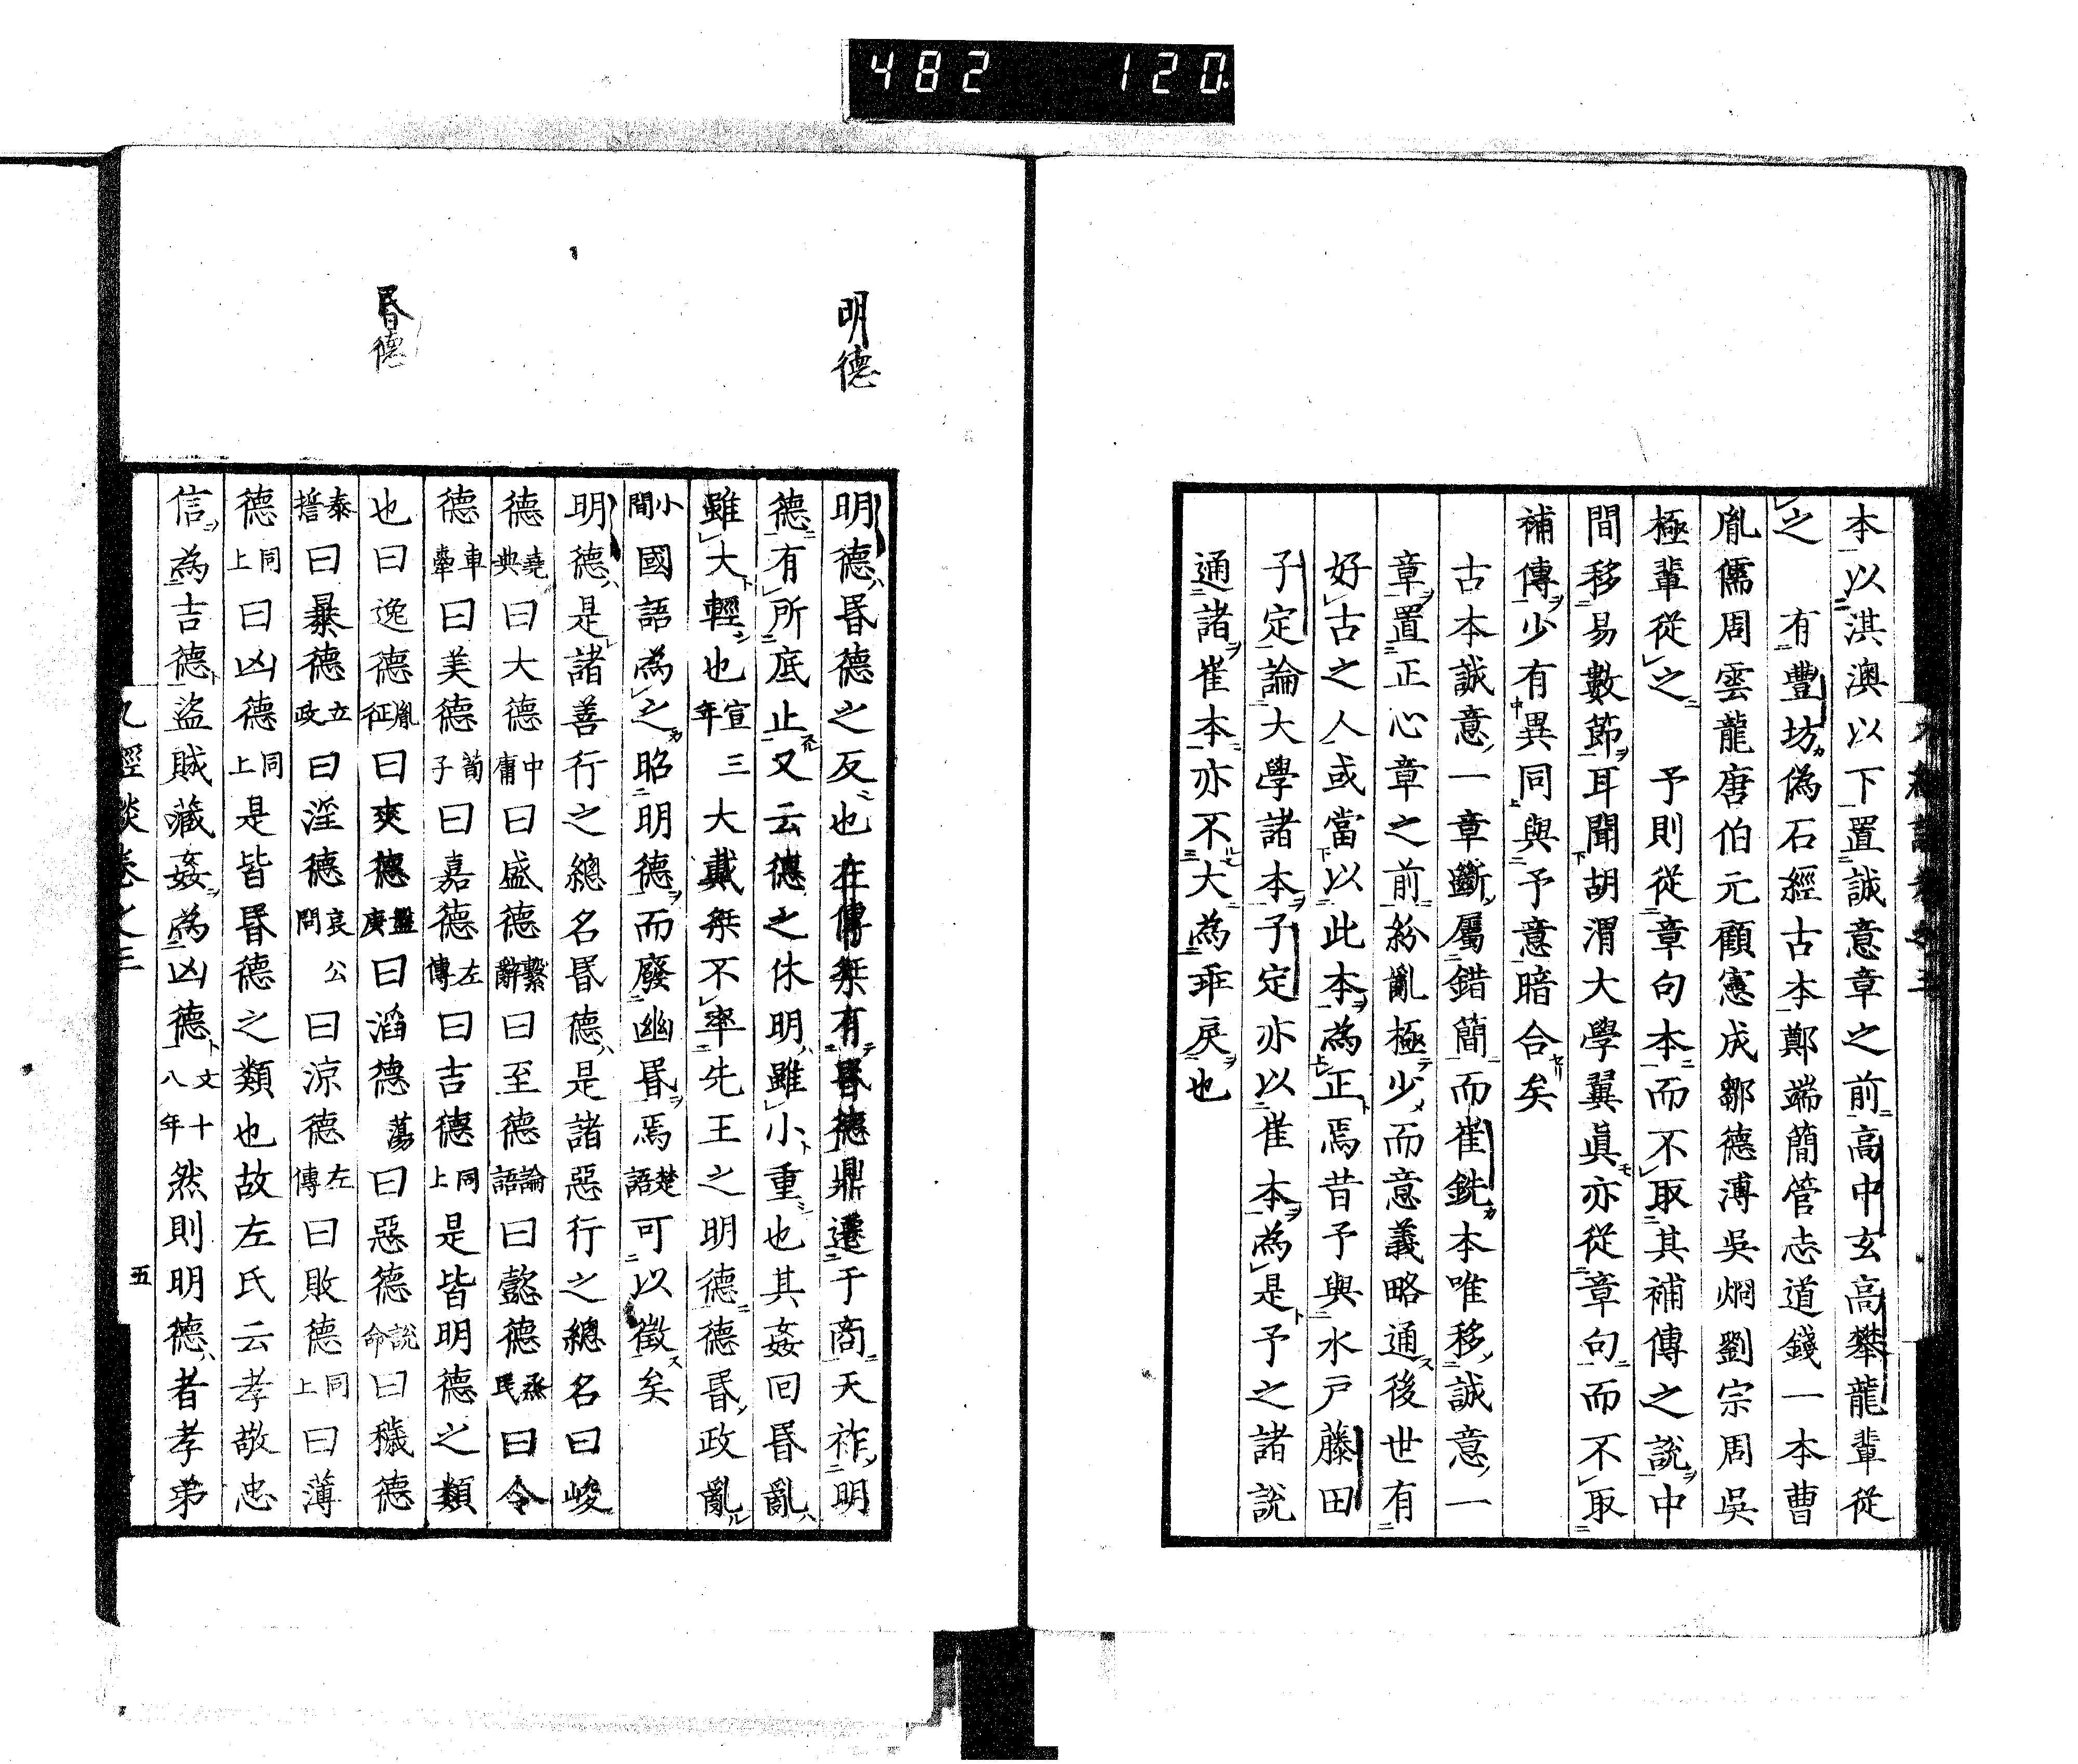 482 120
本以淇澳以下置誠意章之前高中玄高攀龍輩從
之 有豐坊偽石經古本鄭端簡管志道錢一本曹
胤儒周雲龍唐伯元顧憲成鄒德溥吳炯劉宗周吳
極輩從之 予則從章句本而不取其補傳之說中
間移易數節耳聞胡渭大學翼眞亦從章句而不取
補傳少有異同與予意暗合矣
古本誠意一章斷屬錯簡而崔銑本唯移誠意一
章置正心章之前紛亂極少而意義略通後世有
好古之人或當以此本為正焉昔予與水戶藤田
子定論大學諸本子定亦以崔本為是予之諸說
通諸崔本亦不大為乖戾也
明德
昬德
明德昬德之反也在傳桀有昬德鼎遷于商天祚明
德有所底止又云德之休明雖小重也其姦回昬亂
雖大輕也宣三年大戴桀不率先王之明德德昬政亂
小間國語為之昭明德而廢幽昬焉楚語可以徵矣
明德是諸善行之總名昬德是諸惡行之總名曰峻
德堯典曰大德中庸曰盛德繫辭曰至德論語曰懿德烝民曰令
德車舝曰美德荀子曰嘉德左傳曰吉德同上是皆明德之類
也曰逸德胤征曰爽德盤庚曰滔德蕩曰惡德說命曰穢德
泰誓曰暴德立政曰淫德哀公問曰涼德左傳曰敗德同上曰薄
德同上曰凶德同上是皆昬德之類也故左氏云孝敬忠
信為吉德盜賊藏姦為凶德文十八年然則明德者孝弟
九經談卷之三
五